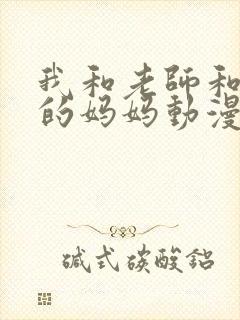 我和老師和
的妈妈動漫
碱式碳酸鋁